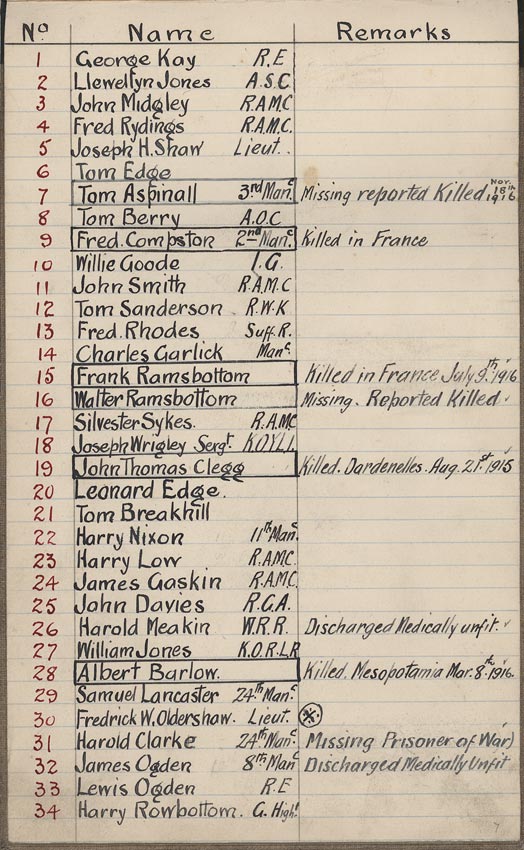 No Name Remarks
1 George Kay R.E
2 Llewellyn Jones A.S.C
3 John Midgley R.A.M.C
4 Fred Rydings R.A.M.C.
5 Joseph H. Shaw Lieut.
6 Tom Edge
7 Tom Aspinall 3rd Manc Missing reported Killed Nov. 18th 1916
8 Tom Berry A.O.C
9 Fred. Compston 2nd Manc. Killed in France
10 Willie Goode I.G.
11 John Smith R.A.M.C
12 Tom Sanderson R.W.K
13 Fred. Rhodes Suff. R.
14 Charles Garlick Manc.
15 Frank Ramsbottom Killed in France July 9.th 1916
16 Walter Ramsbottom Missing. Reported Killed
17 Silvester Sykes. R.A.MC
18 Joseph Wrigley Sergt. K.O.Y.L.I.
19 John Thomas Clegg Killed. Dardenelles. Aug. 21st 1915
20 Leonard Edge.
21 Tom Breakhill
22 Harry Nixon 11th Manc.
23 Harry Low R.A.M.C.
24 James Gaskin R.A.M.C.
25 John Davies R.G.A.
26 Harold Meakin W.R.R. Discharged Medically unfit.
27 William Jones K.O.R.L.R
28 Albert Barlow. Killed. Mesopotamia Mar. 8.th 1916.
29 Samuel Lancaster 24th Manc.
30 Fredrick W. Oldershaw. Lieut.
31 Harold Clarke 24th Manc. Missing Prisoner of War)
32 James Ogden 8th Manc Discharged Medically Unfit
33 Lewis Ogden R.E
34 Harry Rowbottom. G. Highs